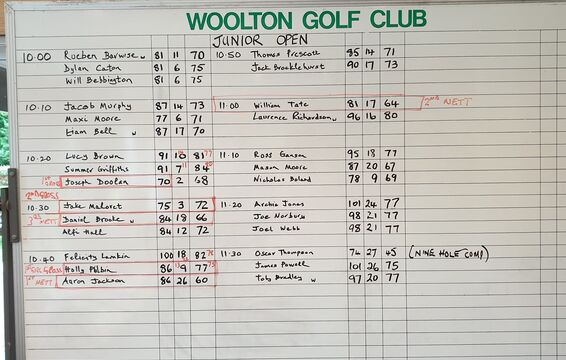 WOOLTON GOLF CLUB
JUNIOR OPEN
10:00 Rueben Barwise w 81 11 70 10:50 Thomas Prescott 85 14 71
Dylan Caton 81 6 75 Jack Brocklehurst 90 17 73
Will Bebbington 81 6 75
10:10 Jacob Murphy 87 14 73 11:00 William Tate 81 17 64 2ND NETT
Maxi Moore 77 6 71 Laurence Richardson w 96 16 80
Liam Bell w 87 17 70
10:20 Lucy Brown 91 10 81 77 11:10 Ross Ganson 95 18 77
Summer Griffiths 91 7 11 84 80 Mason Moore 87 20 67
1ST GROSS Joseph Doolan 70 2 68 Nicholas Boland 78 9 69
2ND GROSS
10:30 Jake Maloret 75 3 72 11:20 Archie Jones 101 24 77
3RD NETT Daniel Brooke w 84 18 66 Joe Norbury 98 21 77
Alfi Hall 84 12 72 Joel Webb 98 21 77
10:40 Felicity Lamkin 100 18 82 78 11:30 Oscar Thompson 72 27 45 (NINE HOLE COMP)
GROSS Holly Philbin 86 9 13 77 73 James Powell 101 26 75
1ST NETT Aaron Jackson 86 26 60 Toby Bradley w 97 20 77